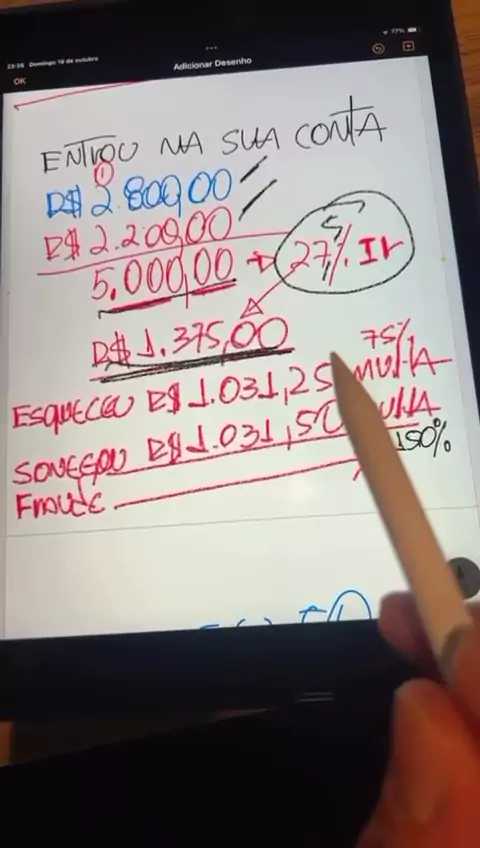 77%
23:35 Domingo 19 de outubro
Adicionar Desenho
OK
ENTROU NA SUA CONTA
1
R$ 2.800,00
R$ 2.200,00
5.000,00 → 27,5% Ir
R$ 1.375,00
75%
ESQUECEU R$ 1.031,25 MULTA
SONEGOU R$ 1.031,50
150%
FRAUDE